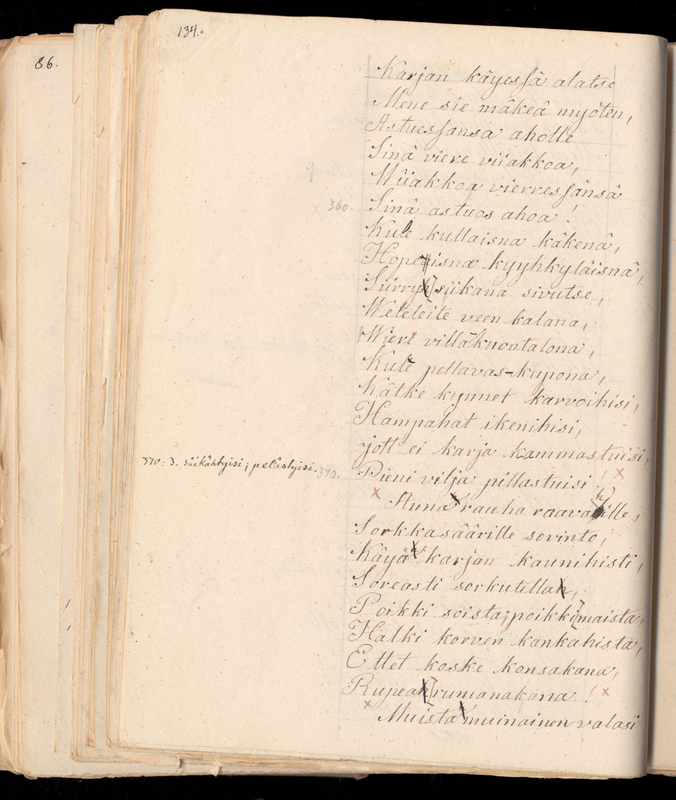 86.
134.
Karjan käyessä alatse
Mene sie mäkeä myöten,
Astuessansa aholle
Sinä viere viiakkoa,
Wiiakkoa vierressänsä
360. Sinä astuos ahoa!
Kule kullaisna käkenä,
Hopeisna kyyhkyläisnä,
Siirry siikana sivutse,
Weteleite veen kalana,
Wiere villakuontalona,
Kule pellavas-kupona,
Kätke kynnet karvoihisi,
Hampahat ikenihisi,
Jott' ei karja kammastuisi,
370:3. säikähtyisi; pelästyisi. 370. Pieni vilja pillastuisi!
Anna rauha raavahille,
Sorkkasäärille sovinto,
Käyä karjan kaunihisti,
Soreasti sorkutella,
Poikki soista, poikki maista,
Halki korven kankahista,
Ettet koske konsakana,
Rupea rumanakana!
Muista muinainen valasi